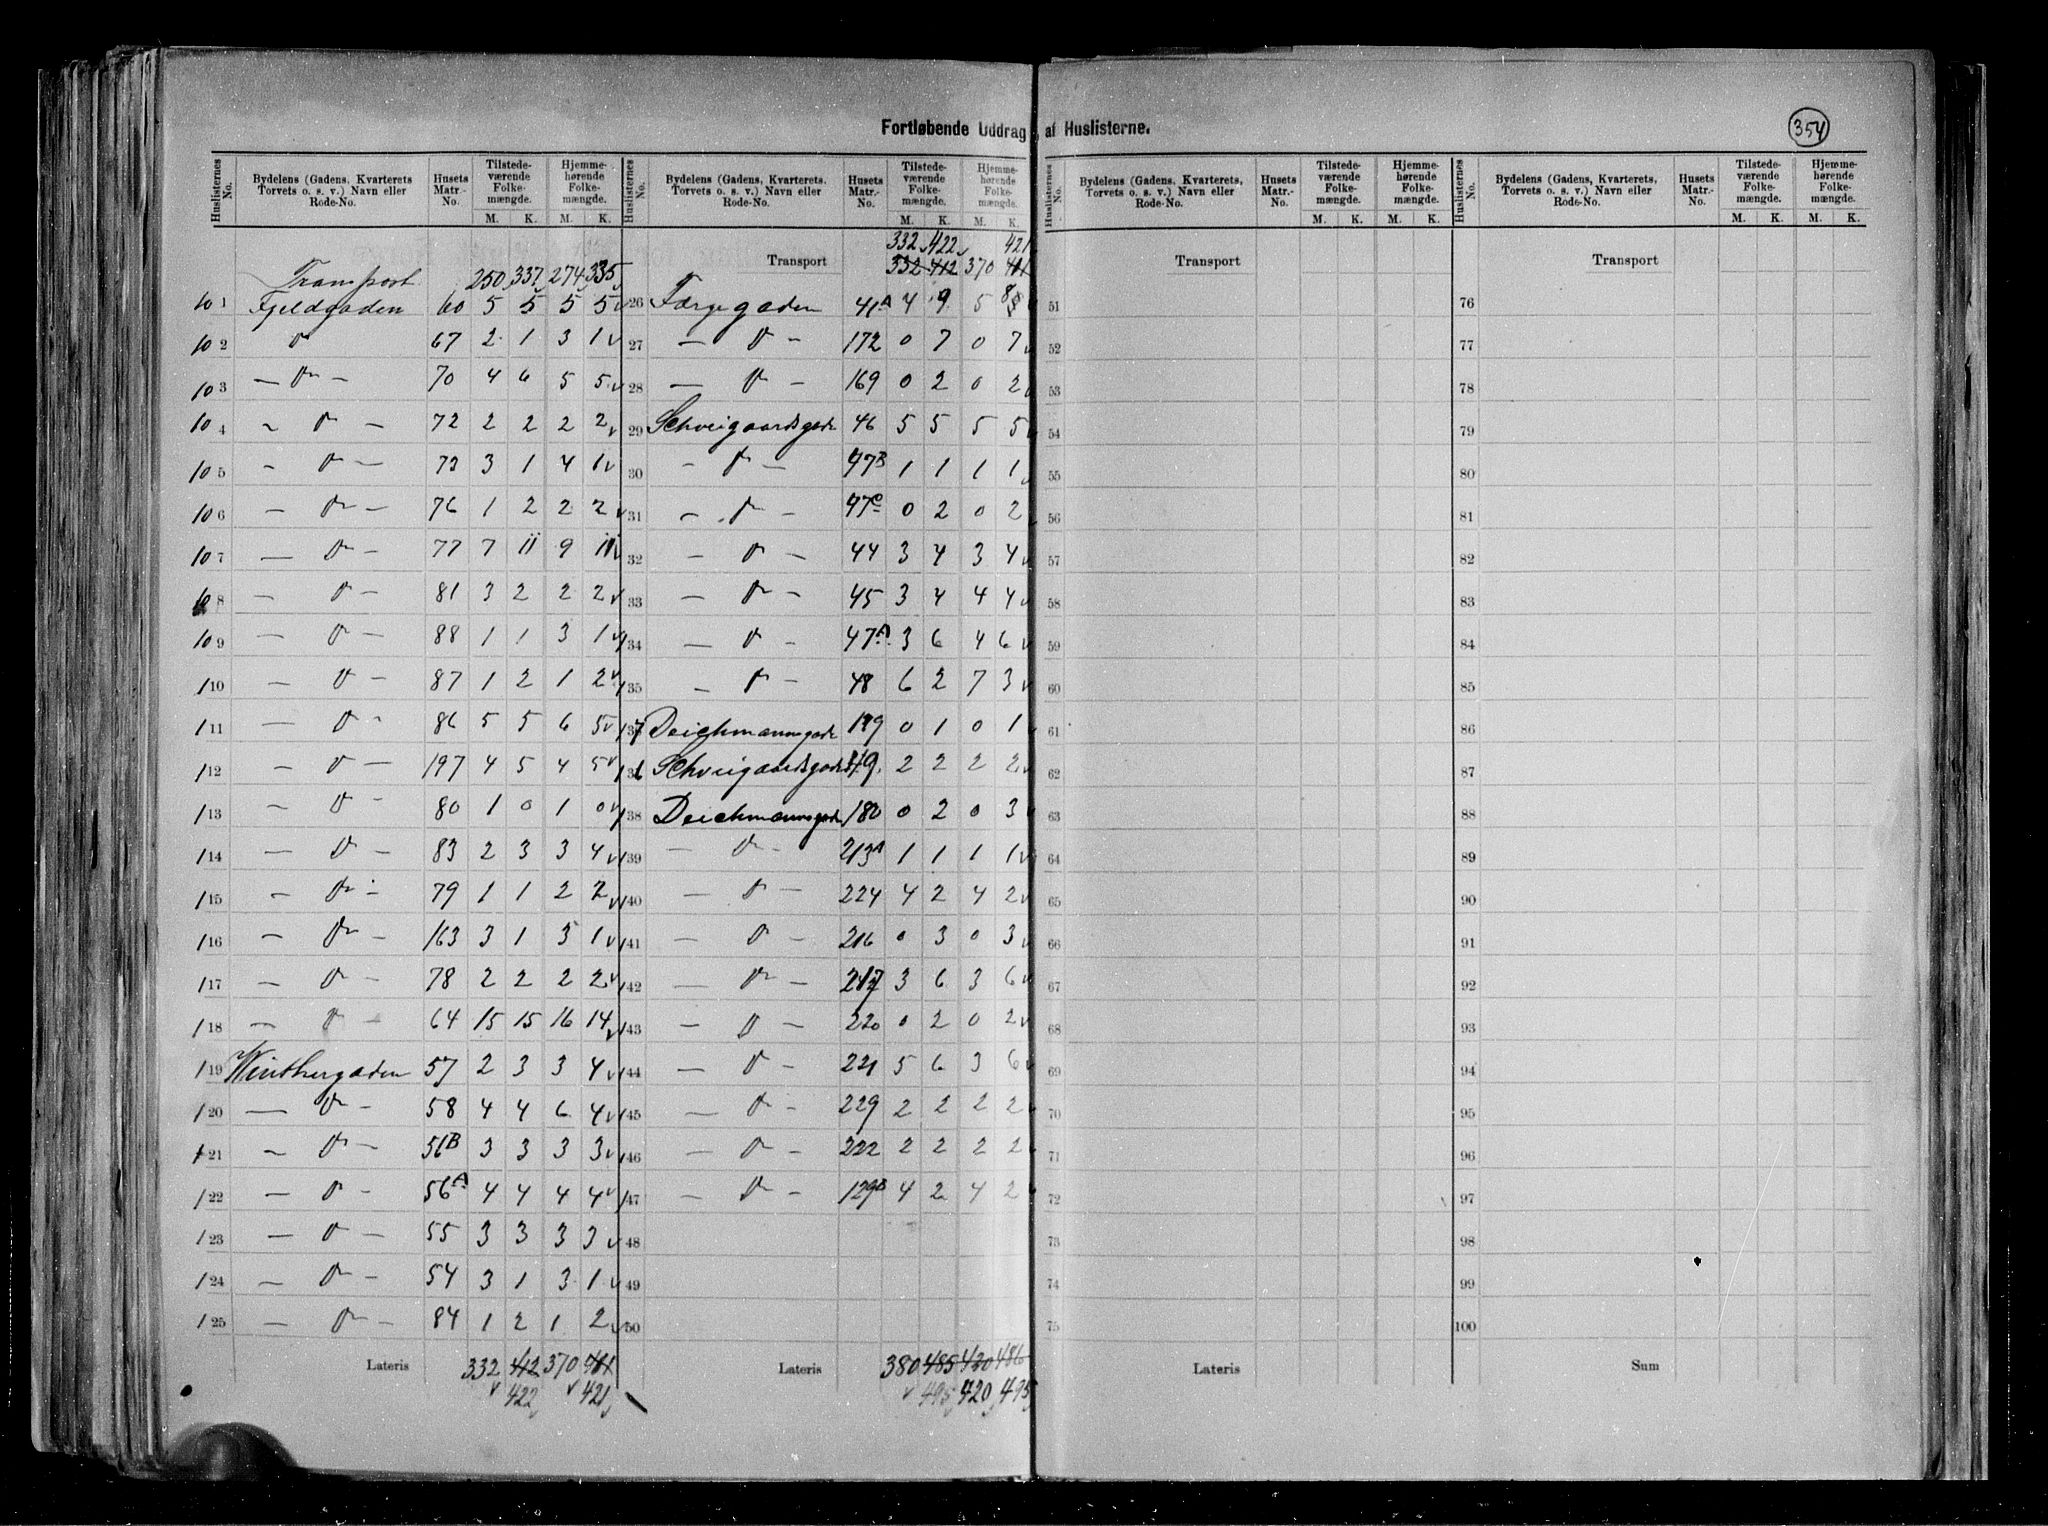 Fortløbende Uddrag af Huslisterne.
354
Huslisternes No. | Bydelens (Gadens, Kvarterets, Torvets o. s. v.) Navn eller Rode-No. | Husets Matr.-No. | Tilstedeværende Folkemængde. M. K. | Hjemmehørende Folkemængde. M. K.
Transport 250 337 274 335
101 Fjeldgaden 60 5 5 5 5
102 D 67 2 1 3 1
103 — D — 70 4 6 5 5
104 — D — 72 2 2 2 2
105 — D — 73 3 1 4 1
106 — D — 76 1 2 2 2
107 — D — 77 7 11 9 11
108 — D — 81 3 2 2 2
109 — D — 88 1 1 3 1
110 — D — 87 1 2 1 2
111 — D — 86 5 5 6 5
112 — D — 197 4 5 4 5
113 — D — 80 1 0 1 0
114 — D — 83 2 3 3 4
115 — D — 79 1 1 2 2
116 — D — 163 3 1 3 1
117 — D — 78 2 2 2 2
118 — D — 64 15 15 16 14
119 Winthergaden 57 2 3 3 4
120 — D — 58 4 4 6 4
121 — D — 56B 3 3 3 3
122 — D — 56A 4 4 4 4
123 — D — 55 3 3 3 3
124 — D — 54 3 1 3 1
125 — D — 84 1 2 1 2
Lateris 332 412 370 411
422 421
Huslisternes No. | Bydelens (Gadens, Kvarterets, Torvets o. s. v.) Navn eller Rode-No. | Husets Matr.-No. | Tilstedeværende Folkemængde. M. K. | Hjemmehørende Folkemængde. M. K.
332 422 421
Transport 332 412 370 411
26 Færgegaden 41A 4 9 5 8
27 — D — 172 0 7 0 7
28 — D — 169 0 2 0 2
29 Schveigaardsgade 46 5 5 5 5
30 — D — 47B 1 1 1 1
31 — D — 47C 0 2 0 2
32 — D — 44 3 4 3 4
33 — D — 45 3 4 4 4
134 — D — 47A 3 6 4 6
135 — D — 48 6 2 7 3
137 Deichmannsgade 179 0 1 0 1
136 Schveigaardsgade 49 2 2 2 2
138 Deichmannsgade 180 0 2 0 3
139 — D — 213A 1 1 1 1
140 — D — 224 4 2 4 2
141 — D — 216 0 3 0 3
142 — D — 217 3 6 3 6
143 — D — 220 0 2 0 2
144 — D — 221 5 6 3 6
145 — D — 229 2 2 2 2
146 — D — 222 2 2 2 2
147 — D — 129B 4 2 4 2
48
49
50
Lateris 380 485 430 486
495 420 495
Huslisternes No. | Bydelens (Gadens, Kvarterets, Torvets o. s. v.) Navn eller Rode-No. | Husets Matr.-No. | Tilstedeværende Folkemængde. M. K. | Hjemmehørende Folkemængde. M. K.
Transport
51
52
53
54
55
56
57
58
59
60
61
62
63
64
65
66
67
68
69
70
71
72
73
74
75
Lateris
Huslisternes No. | Bydelens (Gadens, Kvarterets, Torvets o. s. v.) Navn eller Rode-No. | Husets Matr.-No. | Tilstedeværende Folkemængde. M. K. | Hjemmehørende Folkemængde. M. K.
Transport
76
77
78
79
80
81
82
83
84
85
86
87
88
89
90
91
92
93
94
95
96
97
98
99
100
Sum